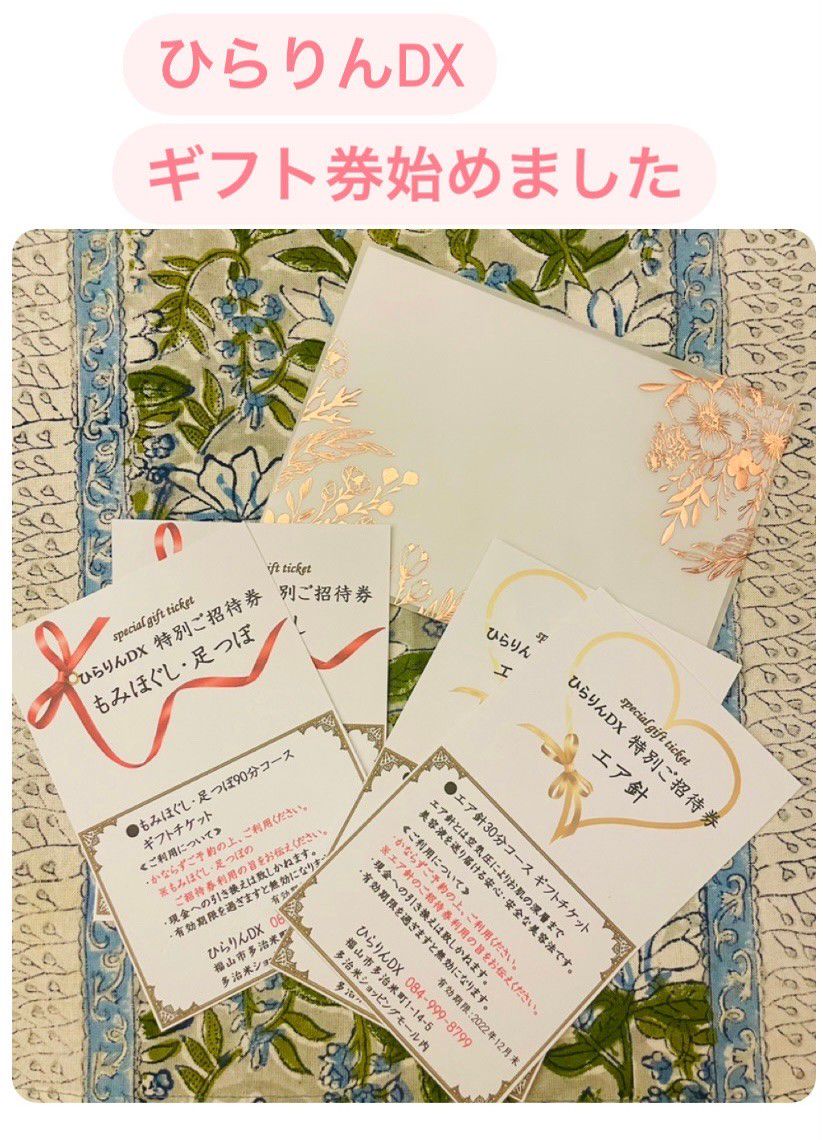 ひらりんDX
ギフト券始めました
special gift ticket
ひらりんDX 特別ご招待券
もみほぐし・足つぼ
もみほぐし・足つぼ90分コース
ギフトチケット
≪ご利用について≫
・かならずご予約の上、ご利用ください。
※もみほぐし、足つぼの
ご招待券利用の旨をお伝えください。
・現金への引き換えは致しかねます。
・有効期限を過ぎますと無効になりま
ひらりんDX
福山市多治米
多治米ショ
gift ticket
別ご招待券
ひらりん
エ
special gift ticket
ひらりんDX 特別ご招待券
エア針
エア針30分コース ギフトチケット
エア針とは空気圧によりお肌の深層まで
美容液を送り届ける安心・安全な美容法です。
≪ご利用について≫
・かならずご予約の上、ご利用ください。
※エア針のご招待券利用の旨をお伝えください。
・現金への引き換えは致しかねます。
・有効期限を過ぎますと無効になります。
有効期限:2022年12月末
ひらりんDX 084-999-8799
福山市多治米町1-14-5
多治米ショッピングモール内